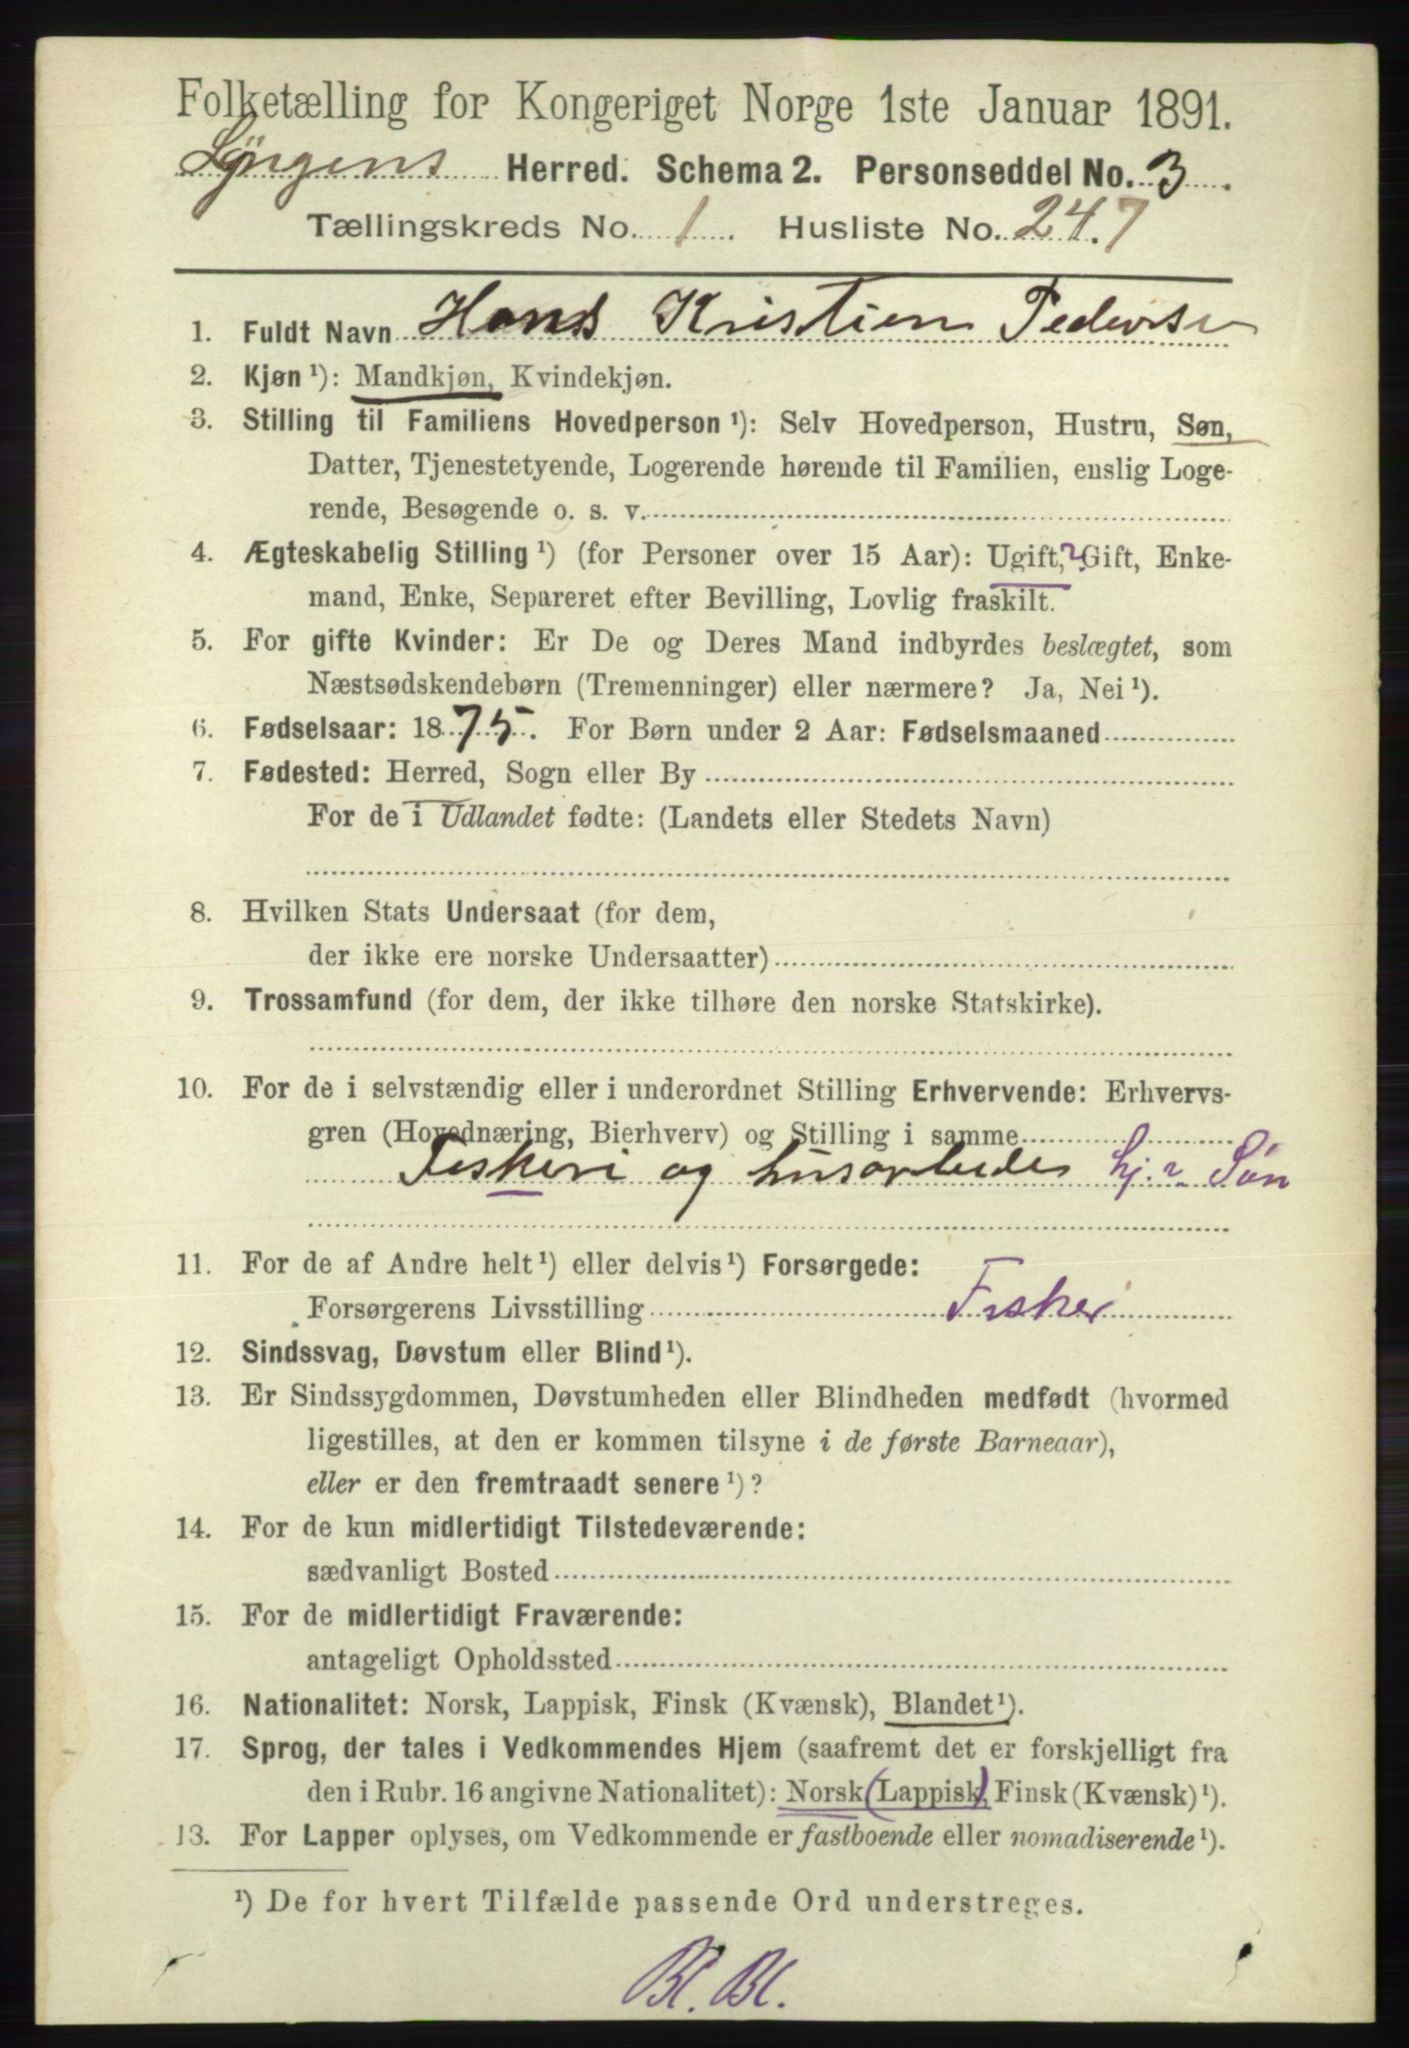 Folketælling for Kongeriget Norge 1ste Januar 1891.
Lyngens Herred. Schema 2. Personseddel No. 3.
Tællingskreds No. 1. Husliste No. 24.7
1. Fuldt Navn Hans Kristian Pedersen
2. Kjøn¹): Mandkjøn, Kvindekjøn.
3. Stilling til Familiens Hovedperson¹): Selv Hovedperson, Hustru, Søn,
Datter, Tjenestetyende, Logerende hørende til Familien, enslig Loge-
rende, Besøgende o. s. v.
4. Ægteskabelig Stilling¹) (for Personer over 15 Aar): Ugift,? Gift, Enke-
mand, Enke, Separeret efter Bevilling, Lovlig fraskilt.
5. For gifte Kvinder: Er De og Deres Mand indbyrdes beslægtet, som
Næstsødskendebørn (Tremenninger) eller nærmere? Ja, Nei¹).
6. Fødselsaar: 1875. For Børn under 2 Aar: Fødselsmaaned
7. Fødested: Herred, Sogn eller By
For de i Udlandet fødte: (Landets eller Stedets Navn)
8. Hvilken Stats Undersaat (for dem,
der ikke ere norske Undersaatter)
9. Trossamfund (for dem, der ikke tilhøre den norske Statskirke).
10. For de i selvstændig eller i underordnet Stilling Erhvervende: Erhvervs-
gren (Hovednæring, Bierhverv) og Stilling i samme
Fiskeri og husarbeide hj. Søn
11. For de af Andre helt¹) eller delvis¹) Forsørgede:
Forsørgerens Livsstilling Fisker
12. Sindssvag, Døvstum eller Blind¹).
13. Er Sindssygdommen, Døvstumheden eller Blindheden medfødt (hvormed
ligestilles, at den er kommen tilsyne i de første Barneaar),
eller er den fremtraadt senere¹)?
14. For de kun midlertidigt Tilstedeværende:
sædvanligt Bosted
15. For de midlertidigt Fraværende:
antageligt Opholdssted
16. Nationalitet: Norsk, Lappisk, Finsk (Kvænsk), Blandet¹).
17. Sprog, der tales i Vedkommendes Hjem (saafremt det er forskjelligt fra
den i Rubr. 16 angivne Nationalitet): Norsk (Lappisk), Finsk (Kvænsk)¹).
13. For Lapper oplyses, om Vedkommende er fastboende eller nomadiserende¹).
¹) De for hvert Tilfælde passende Ord understreges.
Bl. Bl.